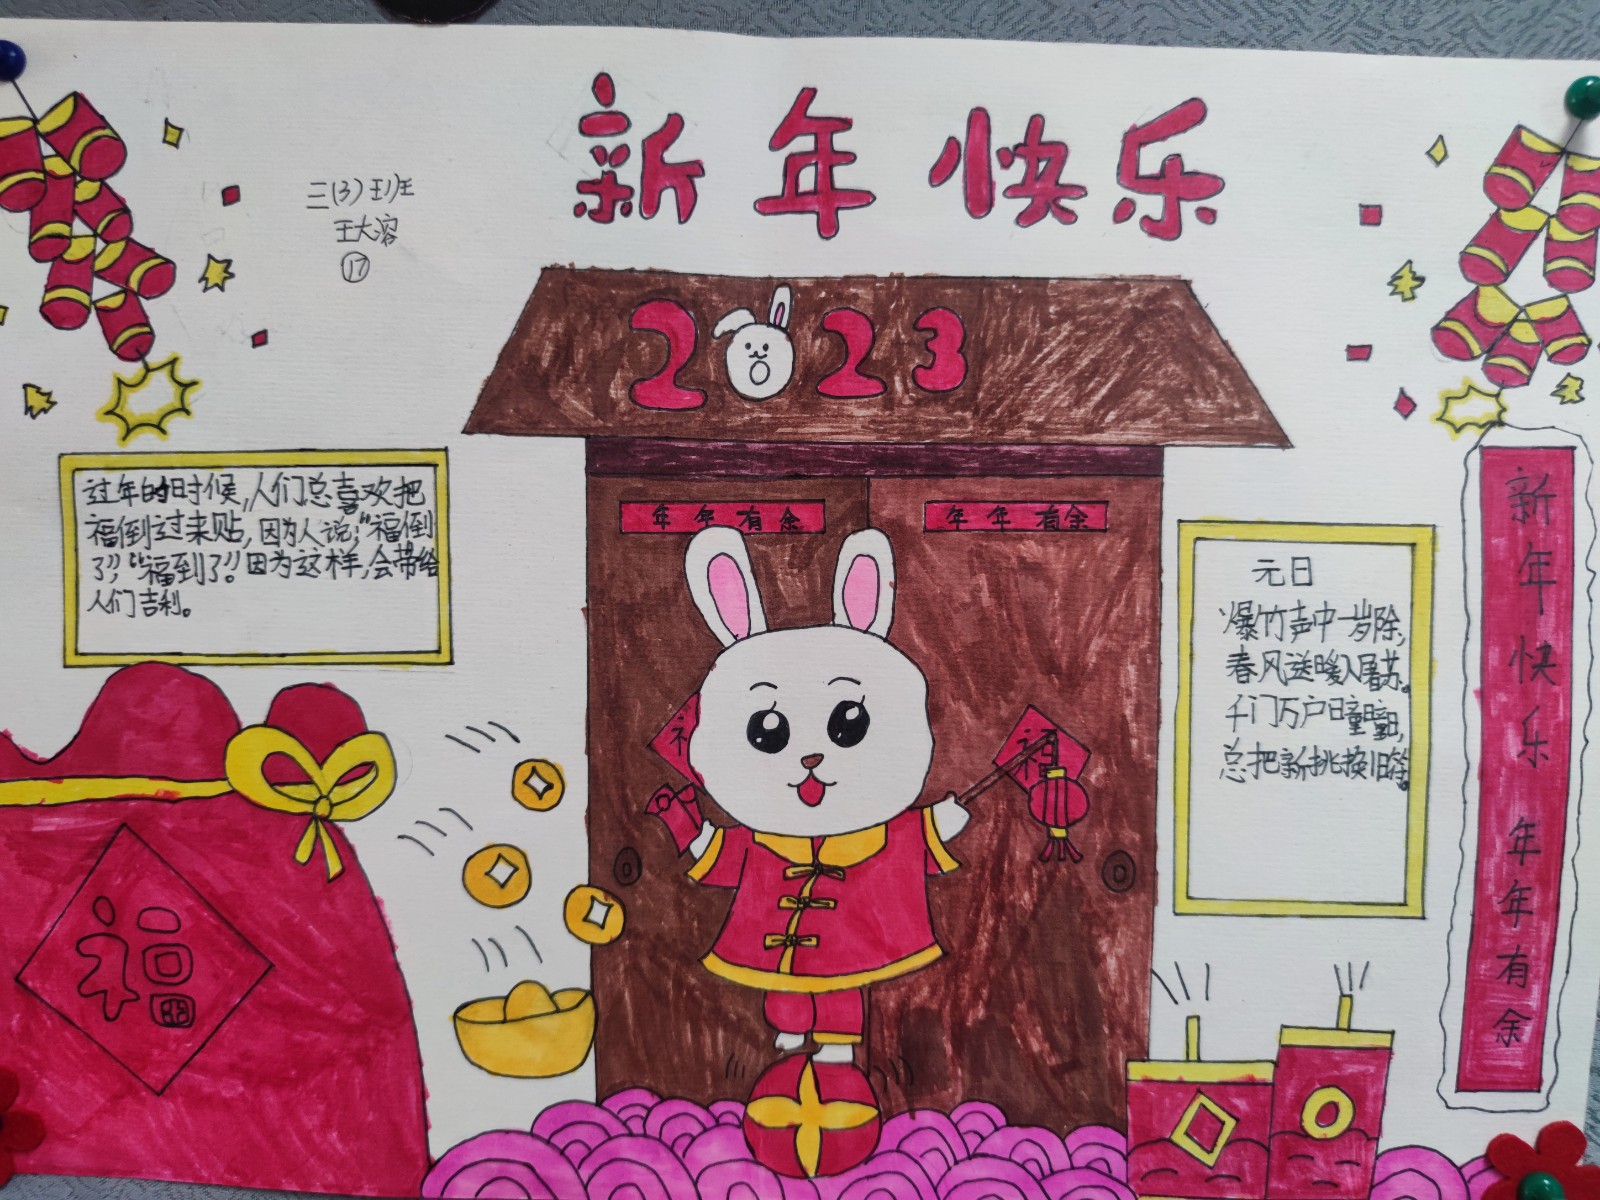 新年快乐
三(3)班
王大溶
17
2023
过年的时候,人们总喜欢把
福倒过来贴,因为人说,“福倒
了”,“福到了”。因为这样,会带给
人们吉利。
年年有余
年年有余
元日
爆竹声中一岁除,
春风送暖入屠苏。
千门万户曈曈日,
总把新挑换旧符。
新年快乐年年有余
福
福